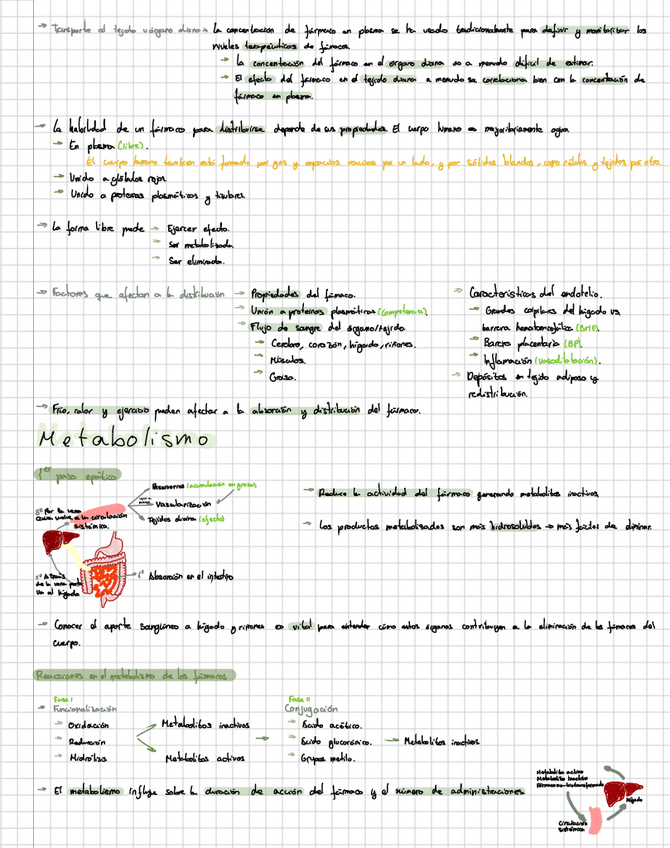 → Transporte al tejido u órgano diana → La concentración de fármaco en plasma se ha usado tradicionalmente para definir y monitorizar los
niveles terapéuticos de fármaco.
→ La concentración del fármaco en el órgano diana es a menudo difícil de estimar.
→ El efecto del fármaco en el tejido diana a menudo se correlaciona bien con la concentración de
fármaco en plasma.
→ La habilidad de un fármaco para distribuirse depende de sus propiedades. El cuerpo humano es mayoritariamente agua.
→ En plasma (libre).
El cuerpo humano también está formado por gas y espacios vacíos por un lado, y por sólidos blandos, como células y tejidos por otro.
→ Unido a glóbulos rojos.
→ Unido a proteínas plasmáticas y tisulares.
→ La forma libre puede → Ejercer efecto.
→ Ser metabolizada.
→ Ser eliminada.
→ Factores que afectan a la distribución → Propiedades del fármaco.
→ Unión a proteínas plasmáticas (competencia).
→ Flujo de sangre del órgano/tejido.
→ Cerebro, corazón, hígado, riñones.
→ Músculos.
→ Grasa.
→ Características del endotelio.
→ Grandes capilares del hígado vs.
barrera hematoencefálica (BHE).
→ Barrera placentaria (BP).
→ Inflamación (vasodilatación).
→ Depósitos en tejido adiposo y
redistribución.
→ Frío, calor y ejercicio pueden afectar a la absorción y distribución del fármaco.
Metabolismo
1er paso hepático
3º Por la vena
cava vuelve a la circulación
sistémica.
Reservorios (acumulación en grasa)
Vascularización
Tejidos diana (efecto)
2º A través
de la vena porta
va al hígado
1º Absorción en el intestino
→ Reduce la actividad del fármaco generando metabolitos inactivos.
→ Los productos metabolizados son más hidrosolubles → más fáciles de eliminar.
→ Conocer el aporte sanguíneo a hígado y riñones es vital para entender cómo estos órganos contribuyen a la eliminación de los fármacos del
cuerpo.
Reacciones en el metabolismo de los fármacos
Fase I
→ Funcionalización
→ Oxidación
→ Reducción
→ Hidrólisis
Metabolitos inactivos
Metabolitos activos
Fase II
Conjugación
→ Ácido acético.
→ Ácido glucorónico.
→ Grupos metilo.
→ Metabolitos inactivos
→ El metabolismo influye sobre la duración de acción del fármaco y el número de administraciones.
Metabolito activo
Metabolito inactivo
Fármaco biotransformado
Hígado
Circulación
sistémica